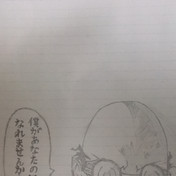 僕があなたの
なれませんか